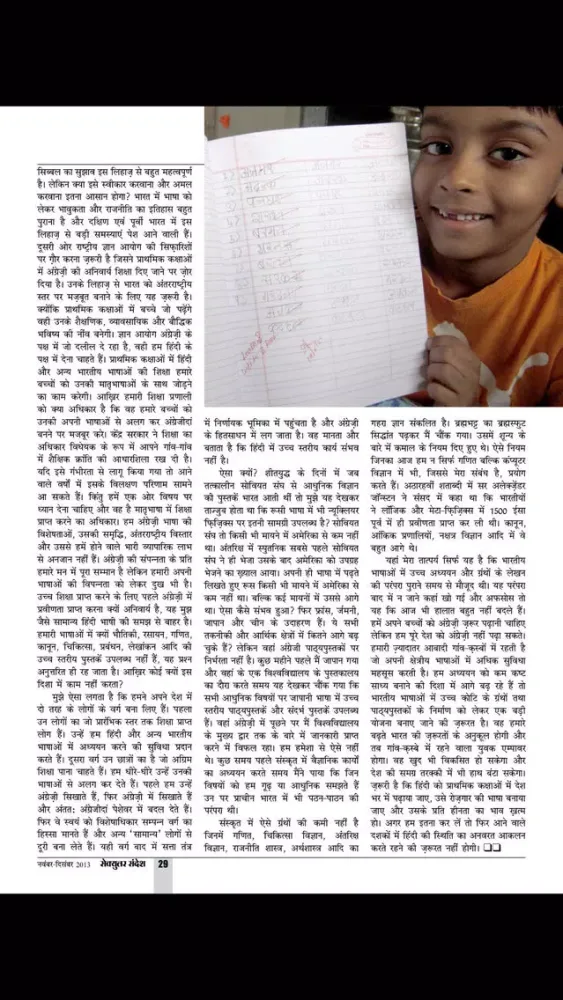 सिब्बल का सुझाव इस लिहाज़ से बहुत महत्वपूर्ण
है। लेकिन क्या इसे स्वीकार करवाना और अमल
करवाना इतना आसान होगा? भारत में भाषा को
लेकर भावुकता और राजनीति का इतिहास बहुत
पुराना है और दक्षिण एवं पूर्वी भारत में इस
लिहाज़ से बड़ी समस्याएं पेश आने वाली हैं।
दूसरी ओर राष्ट्रीय ज्ञान आयोग की सिफ़ारिशों
पर ग़ौर करना ज़रूरी है जिसने प्राथमिक कक्षाओं
में अंग्रेज़ी की अनिवार्य शिक्षा दिए जाने पर ज़ोर
दिया है। उनके लिहाज़ से भारत को अंतरराष्ट्रीय
स्तर पर मज़बूत बनाने के लिए यह ज़रूरी है।
क्योंकि प्राथमिक कक्षाओं में बच्चे जो पढ़ेंगे
वही उनके शैक्षणिक, व्यावसायिक और बौद्धिक
भविष्य की नींव बनेगी। ज्ञान आयोग अंग्रेज़ी के
पक्ष में जो दलील दे रहा है, वही हम हिंदी के
पक्ष में देना चाहते हैं। प्राथमिक कक्षाओं में हिंदी
और अन्य भारतीय भाषाओं की शिक्षा हमारे
बच्चों को उनकी मातृभाषाओं के साथ जोड़ने
का काम करेगी। आख़िर हमारी शिक्षा प्रणाली
को क्या अधिकार है कि वह हमारे बच्चों को
उनकी अपनी भाषाओं से अलग कर अंग्रेजीदां
बनने पर मजबूर करे। केंद्र सरकार ने शिक्षा का
अधिकार विधेयक के रूप में आपने गांव-गांव
में शैक्षिक क्रांति की आधारशिला रख दी है।
यदि इसे गंभीरता से लागू किया गया तो आने
वाले वर्षों में इसके विलक्षण परिणाम सामने
आ सकते हैं। किंतु हमें एक ओर विषय पर
ध्यान देना चाहिए और वह है मातृभाषा में शिक्षा
प्राप्त करने का अधिकार। हम अंग्रेज़ी भाषा की
विशेषताओं, उसकी समृद्धि, अंतरराष्ट्रीय विस्तार
और उससे हमें होने वाले भारी व्यापारिक लाभ
से अनजान नहीं हैं। अंग्रेज़ी की संपन्नता के प्रति
हमारे मन में पूरा सम्मान है लेकिन हमारी अपनी
भाषाओं की विपन्नता को लेकर दुख भी है।
उच्च शिक्षा प्राप्त करने के लिए पहले अंग्रेज़ी में
प्रवीणता प्राप्त करना क्यों अनिवार्य है, यह मुझ
जैसे सामान्य हिंदी भाषी की समझ से बाहर है।
हमारी भाषाओं में क्यों भौतिकी, रसायन, गणित,
कानून, चिकित्सा, प्रबंधन, लेखांकन आदि की
उच्च स्तरीय पुस्तकें उपलब्ध नहीं हैं, यह प्रश्न
अनुत्तरित ही रह जाता है। आख़िर कोई क्यों इस
दिशा में काम नहीं करता?
मुझे ऐसा लगता है कि हमने अपने देश में
दो तरह के लोगों के वर्ग बना लिए हैं। पहला
उन लोगों का जो प्रारंभिक स्तर तक शिक्षा प्राप्त
लोग हैं। उन्हें हम हिंदी और अन्य भारतीय
भाषाओं में अध्ययन करने की सुविधा प्रदान
करते हैं। दूसरा वर्ग उन छात्रों का है जो अग्रिम
शिक्षा पाना चाहते हैं। हम धीरे-धीरे उन्हें उनकी
भाषाओं से अलग कर देते हैं। पहले हम उन्हें
अंग्रेज़ी सिखाते हैं, फिर अंग्रेज़ी में सिखाते हैं
और अंततः अंग्रेजीदां पेशेवर में बदल देते हैं।
फिर वे स्वयं को विशेषाधिकार सम्पन्न वर्ग का
हिस्सा मानते हैं और अन्य 'सामान्य' लोगों से
दूरी बना लेते हैं। यही वर्ग बाद में सत्ता तंत्र
में निर्णायक भूमिका में पहुंचता है और अंग्रेज़ी
के हितसाधन में लग जाता है। वह मानता और
बताता है कि हिंदी में उच्च स्तरीय कार्य संभव
नहीं है।
ऐसा क्यों? शीतयुद्ध के दिनों में जब
तत्कालीन सोवियत संघ से आधुनिक विज्ञान
की पुस्तकें भारत आती थीं तो मुझे यह देखकर
ताज्जुब होता था कि रूसी भाषा में भी न्यूक्लियर
फ़िज़िक्स पर इतनी सामग्री उपलब्ध है? सोवियत
संघ तो किसी भी मायने में अमेरिका से कम नहीं
था। अंतरिक्ष में स्पुतनिक सबसे पहले सोवियत
संघ ने ही भेजा उसके बाद अमेरिका को उपग्रह
भेजने का ख्याल आया। अपनी ही भाषा में पढ़ते
लिखते हुए रूस किसी भी मायने में अमेरिका से
कम नहीं था। बल्कि कई मायनों में उससे आगे
था। ऐसा कैसे संभव हुआ? फिर फ्रांस, जर्मनी,
जापान और चीन के उदाहरण हैं। ये सभी
तकनीकी और आर्थिक क्षेत्रों में कितने आगे बढ़
चुके हैं? लेकिन वहां अंग्रेजी पाठ्यपुस्तकों पर
निर्भरता नहीं है। कुछ महीने पहले मैं जापान गया
और वहां के एक विश्वविद्यालय के पुस्तकालय
का दौरा करते समय यह देखकर चौंक गया कि
सभी आधुनिक विषयों पर जापानी भाषा में उच्च
स्तरीय पाठ्यपुस्तकें और संदर्भ पुस्तकें उपलब्ध
हैं। वहां अंग्रेज़ी में पूछने पर मैं विश्वविद्यालय
के मुख्य द्वार तक के बारे में जानकारी प्राप्त
करने में विफल रहा। हम हमेशा से ऐसे नहीं
थे। कुछ समय पहले संस्कृत में वैज्ञानिक कार्यों
का अध्ययन करते समय मैंने पाया कि जिन
विषयों को हम गूढ़ या आधुनिक समझते हैं
उन पर प्राचीन भारत में भी पठन-पाठन की
परंपरा थी।
संस्कृत में ऐसे ग्रंथों की कमी नहीं है
जिनमें गणित, चिकित्सा विज्ञान, अंतरिक्ष
विज्ञान, राजनीति शास्त्र, अर्थशास्त्र आदि का
गहरा ज्ञान संकलित है। ब्रह्मभट्ट का ब्रह्मस्फुट
सिद्धांत पढ़कर मैं चौंक गया। उसमें शून्य के
बारे में कमाल के नियम दिए हुए थे। ऐसे नियम
जिनका आज हम न सिर्फ गणित बल्कि कंप्यूटर
विज्ञान में भी, जिससे मेरा संबंध है, प्रयोग
करते हैं। अठारहवीं शताब्दी में सर अलेक्ज़ेंडर
जॉन्स्टन ने संसद में कहा था कि भारतीयों
ने लॉजिक और मेटा-फ़िज़िक्स में 1500 ईसा
पूर्व में ही प्रवीणता प्राप्त कर ली थी। कानून,
आंकिक प्रणालियों, नक्षत्र विज्ञान आदि में वे
बहुत आगे थे।
यहां मेरा तात्पर्य सिर्फ यह है कि भारतीय
भाषाओं में उच्च अध्ययन और ग्रंथों के लेखन
की परंपरा पुराने समय से मौजूद थी। यह परंपरा
बाद में न जाने कहां खो गई और अफसोस तो
यह कि आज भी हालात बहुत नहीं बदले हैं।
हमें अपने बच्चों को अंग्रेज़ी ज़रूर पढ़ानी चाहिए
लेकिन हम पूरे देश को अंग्रेज़ी नहीं पढ़ा सकते।
हमारी ज़्यादातर आबादी गांव-क़स्बों में रहती है
जो अपनी क्षेत्रीय भाषाओं में अधिक सुविधा
महसूस करती है। हम अध्ययन को कम कष्ट
साध्य बनाने की दिशा में आगे बढ़ रहे हैं तो
भारतीय भाषाओं में उच्च कोटि के ग्रंथों तथा
पाठ्यपुस्तकों के निर्माण को लेकर एक बड़ी
योजना बनाए जाने की ज़रूरत है। वह हमारे
बढ़ते भारत की ज़रूरतों के अनुकूल होगी और
तब गांव-क़स्बे में रहने वाला युवक एम्पावर
होगा। वह खुद भी विकसित हो सकेगा और
देश की समग्र तरक्की में भी हाथ बंटा सकेगा।
ज़रूरी है कि हिंदी को प्राथमिक कक्षाओं में देश
भर में पढ़ाया जाए, उसे रोज़गार की भाषा बनाया
जाए और उसके प्रति हीनता का भाव ख़त्म
हो। अगर हम इतना कर लें तो फिर आने वाले
दशकों में हिंदी की स्थिति का अनवरत आकलन
करते रहने की ज़रूरत नहीं होगी। ❑❑
नवंबर-दिसंबर 2013 सेक्युलर संदेश 29